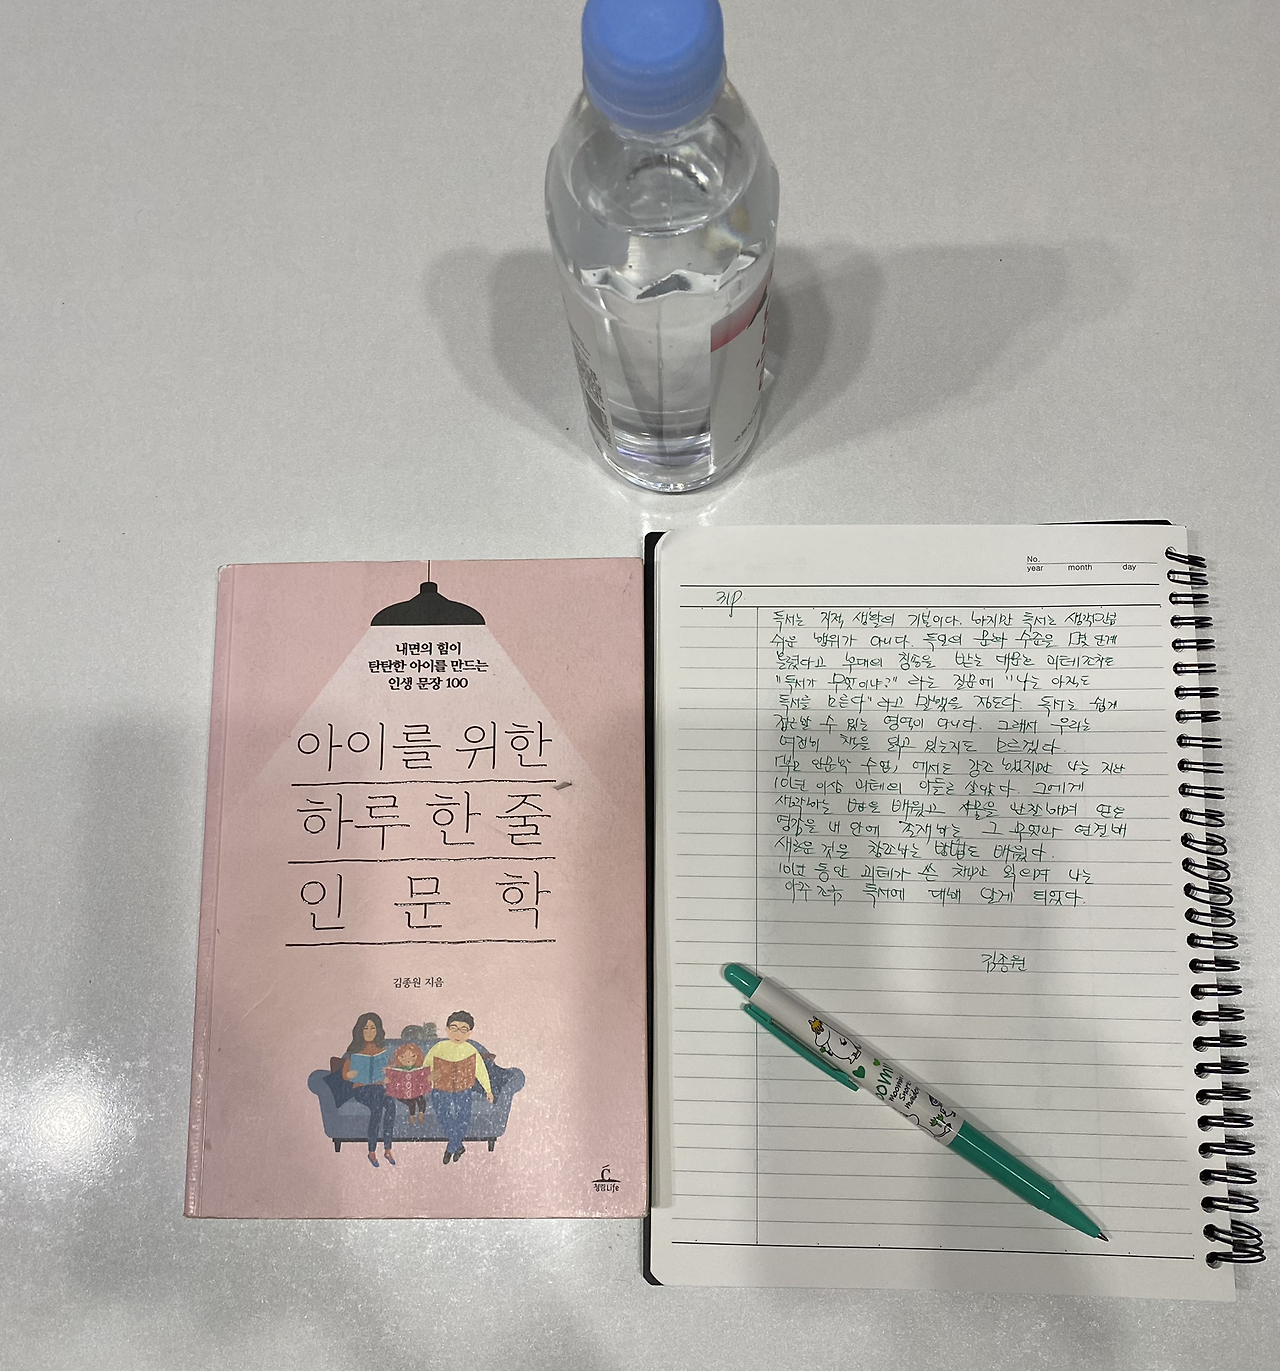 내면의 힘이
탄탄한 아이를 만드는
인생 문장 100
아이를 위한
하루 한 줄
인 문 학
김종원 지음
청림Life
No.
year month day
31p.
독서는 지적 생활의 기본이다. 하지만 독서는 생각만큼
쉬운 행위가 아니다. 독일의 문화 수준을 몇 단계
올렸다고 후대의 칭송을 받는 대문호 괴테조차도
"독서가 무엇이냐?" 라는 질문에 "나는 아직도
독서를 모른다" 라고 말했을 정도다. 독서는 쉽게
접근할 수 있는 영역이 아니다. 그래서 우리는
여전히 책을 읽고 있는지도 모르겠다.
인문학 수업, 에서도 강조 했지만 나는 지난
10년 이상 괴테의 아들로 살았다. 그에게
생각하는 법을 배웠고 사물을 관찰하며 얻은
영감을 내 안에 존재하는 그 무엇과 연결해
새로운 것을 창조하는 방법도 배웠다.
10년 동안 괴테가 쓴 책만 읽으며 나는
아주 조금 독서에 대해 알게 되었다.
김종원